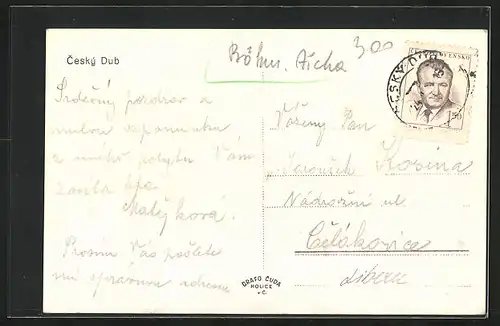 Český Dub
Böhm. Aicha
300
ČESKÝ DUB
ČESKOSLOVENSKO
1.50
Srdečný pozdrav a
milou vzpomínku
z mého pobytu Vám
zasílá
Matějková.
Prosím Vás pošlete
mi správnou adresu
Vážený Pan
Jaroušek Kosina
Nádražní ul
Čelákovice
Liberec
GRAFO ČUDA
HOLICE
v Č.